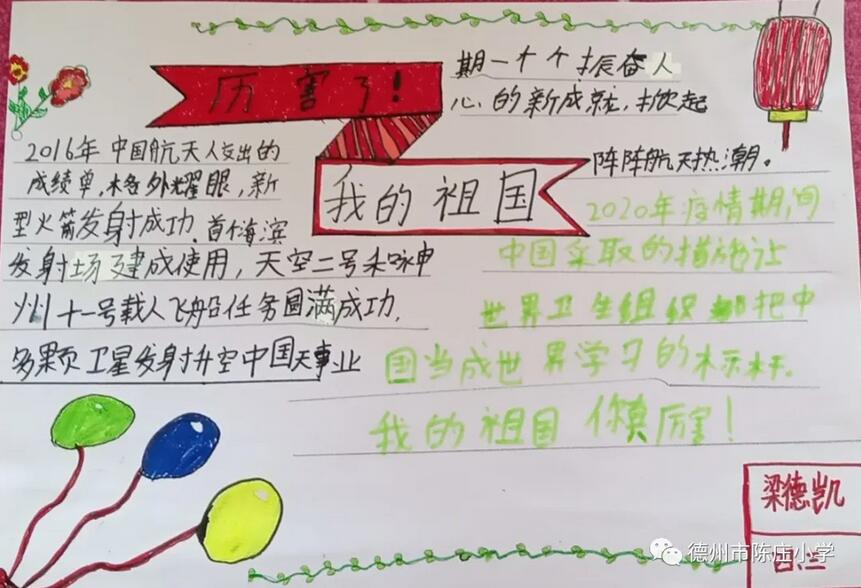 厉害了!
我的祖国
2016年中国航天人交出的
成绩单,格外耀眼,新
型火箭发射成功,首海滨
发射场建成使用,天空二号和神
州十一号载人飞船任务圆满成功,
多颗卫星发射升空中国天事业
期一个个振奋人
心的新成就,掀起
阵阵航天热潮。
2020年疫情期间
中国采取的措施让
世界卫生组织都把中
国当成世界学习的标杆。
我的祖国你真厉害!
梁德凯
德州市陈庄小学